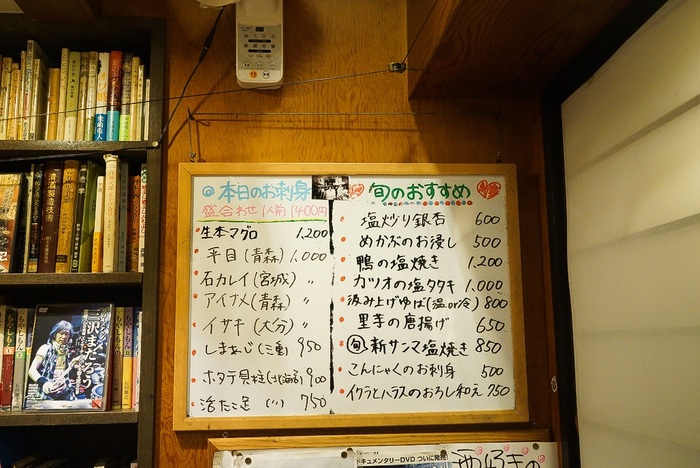 本日のお刺身
盛合わせ 1人前 1400円
生本マグロ 1,200
平目(青森) 1,000
石カレイ(宮城) 〃
アイナメ(青森) 〃
イサキ(大分) 〃
しまあじ(三重) 950
ホタテ貝柱(北海道) 900
活たこ足 (〃) 750
旬のおすすめ
塩炒り銀杏 600
めかぶのお浸し 500
鴨の塩焼き 1,200
カツオの塩タタキ 1,000
汲み上げゆば(温or冷) 800
里芋の唐揚げ 650
旬 新サンマ塩焼き 850
こんにゃくのお刺身 500
イクラとハラスのおろし和え 750
三沢またろう
ドキュメンタリーDVD ついに発売